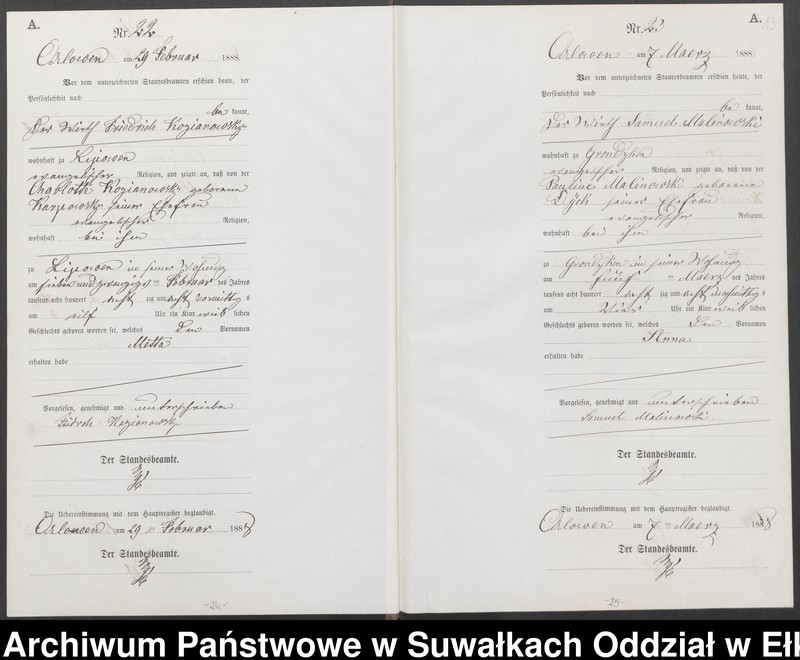 A.
Nr. 22
Orlowen am 29 Februar 1888.
Vor dem unterzeichneten Standesbeamten erschien heute, der
Persönlichkeit nach
be kannt,
Der Wirth Friedrich Kozianowsky
wohnhaft zu Lipowen
evangelischer Religion, und zeigte an, daß von der
Charlotte Kozianowsky geborene
Karpowsky seiner Ehefrau
evangelischer Religion,
wohnhaft bei ihm
zu Lipowen in seiner Wohnung
am sieben und zwanzigs ten Februar des Jahres
tausend acht hundert acht zig und acht Vormittag s
um eilf Uhr ein Kind weib lichen
Geschlechts geboren worden sei, welches den Vornamen
Metta
erhalten habe
Vorgelesen, genehmigt und unterschrieben
Kozianowsky
Der Standesbeamte.
Die Uebereinstimmung mit dem Hauptregister beglaubigt.
Orlowen am 29 ten Februar 1888
Der Standesbeamte.
-24-
A. 13
Nr. 23
Orlowen am 7 Maerz 1888.
Vor dem unterzeichneten Standesbeamten erschien heute, der
Persönlichkeit nach
be kannt,
Der Wirth Samuel Malinowski
wohnhaft zu Grondzken
evangelischer Religion, und zeigte an, daß von der
Pauline Malinowski geborene
Dyck seiner Ehefrau
evangelischer Religion,
wohnhaft bei ihm
zu Grondzken in seiner Wohnung
am fünf ten Maerz des Jahres
tausend acht hundert acht zig und acht Nachmittag s
um Vier Uhr ein Kind weib lichen
Geschlechts geboren worden sei, welches den Vornamen
Anna
erhalten habe
Vorgelesen, genehmigt und unterschrieben
Samuel Malinowski
Der Standesbeamte.
Die Uebereinstimmung mit dem Hauptregister beglaubigt.
Orlowen am 7 ten Maerz 1888
Der Standesbeamte.
-25-
Archiwum Państwowe w Suwałkach Oddział w Ełk